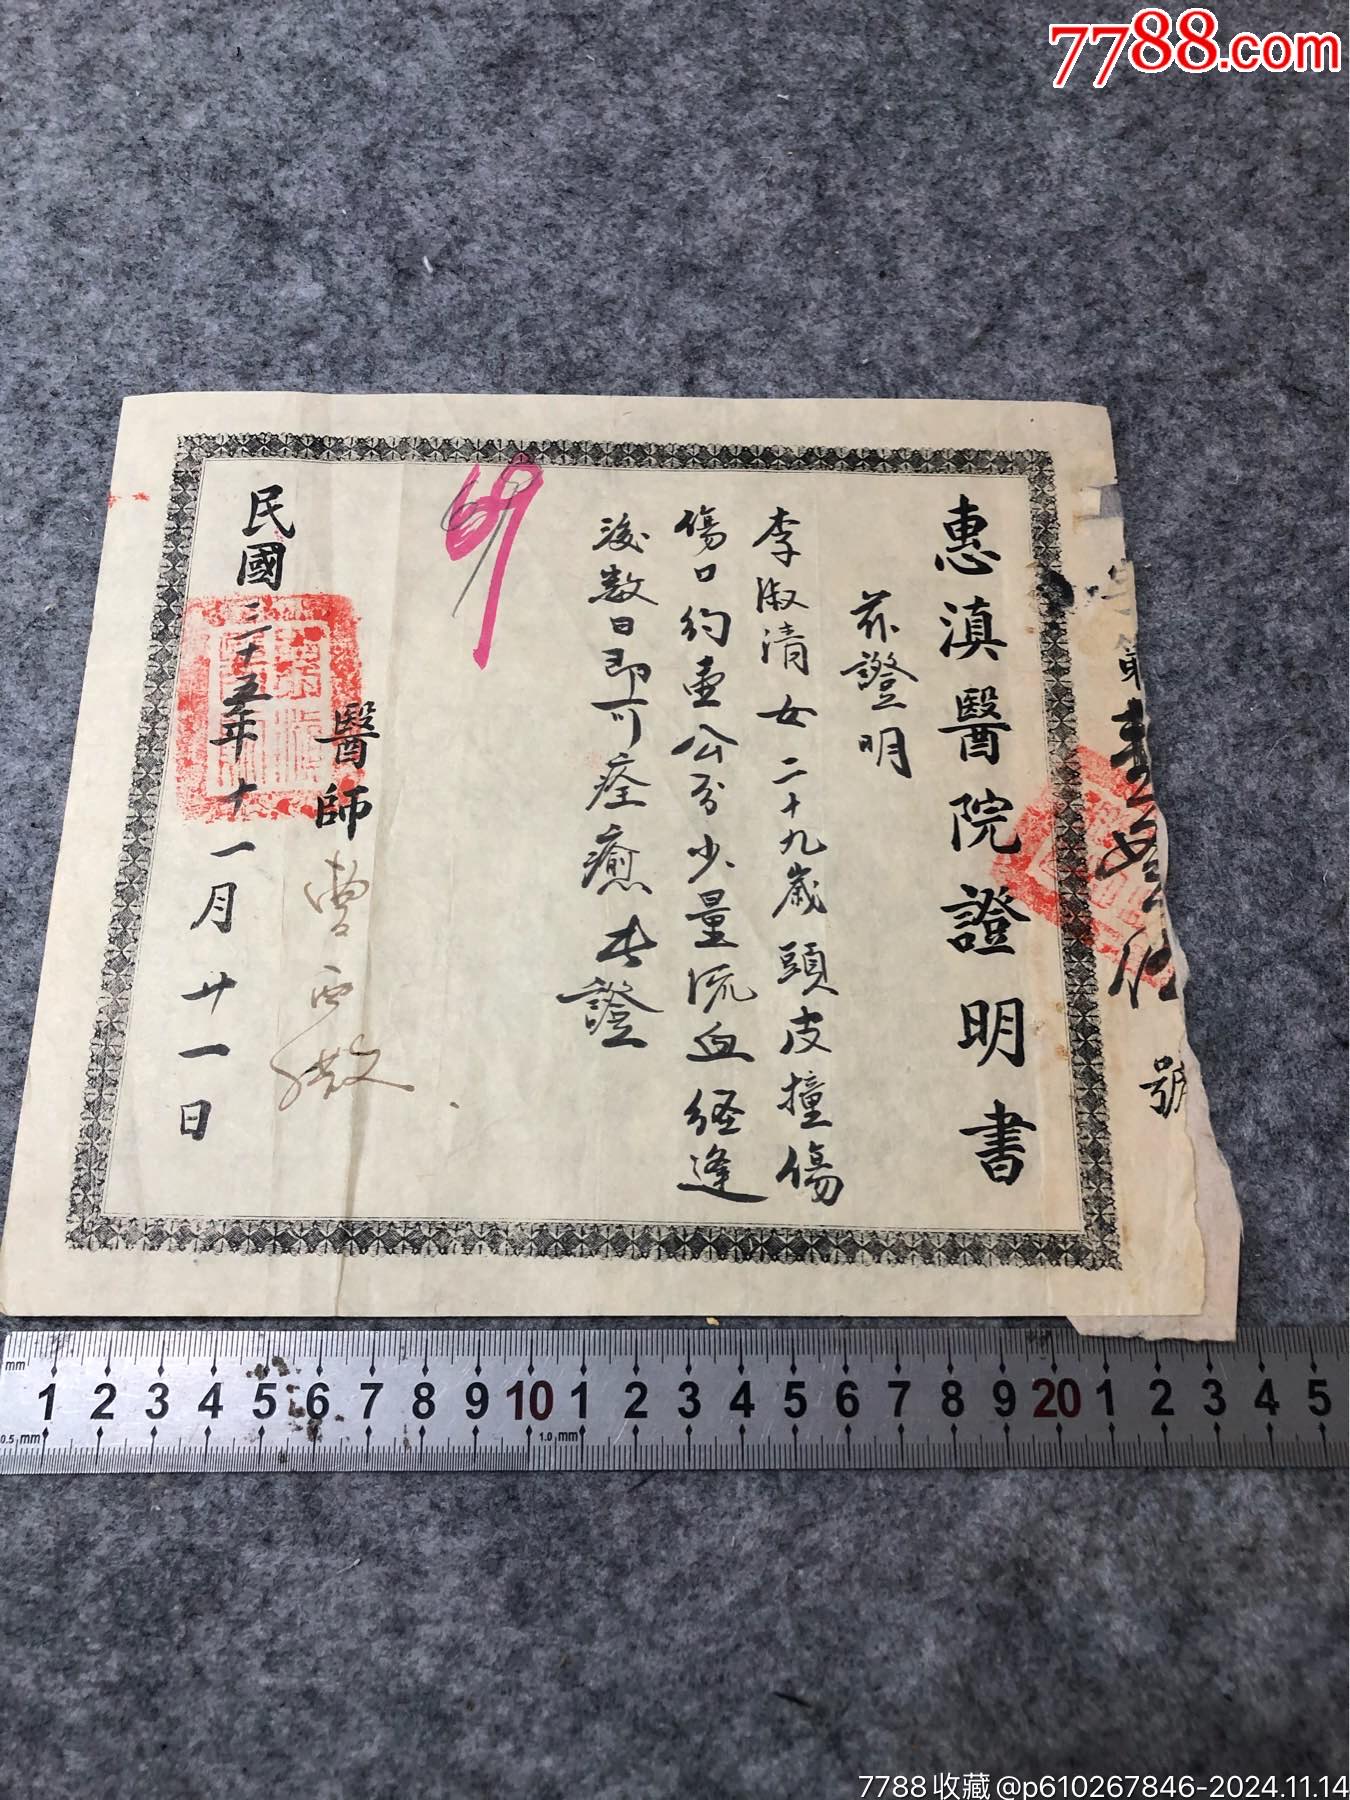 7788.com
字第壹 號
惠滇醫院證明書
茲證明
李淑清女二十九歲頭皮撞傷
傷口約壹公分少量流血經逢
後数日即可痊癒此證
69
醫師
民國三十五年十一月廿一日
mm 1 2 3 4 5 6 7 8 9 10 1 2 3 4 5 6 7 8 9 20 1 2 3 4 5
0.5 mm 1.0 mm
7788收藏@p610267846-2024.11.14